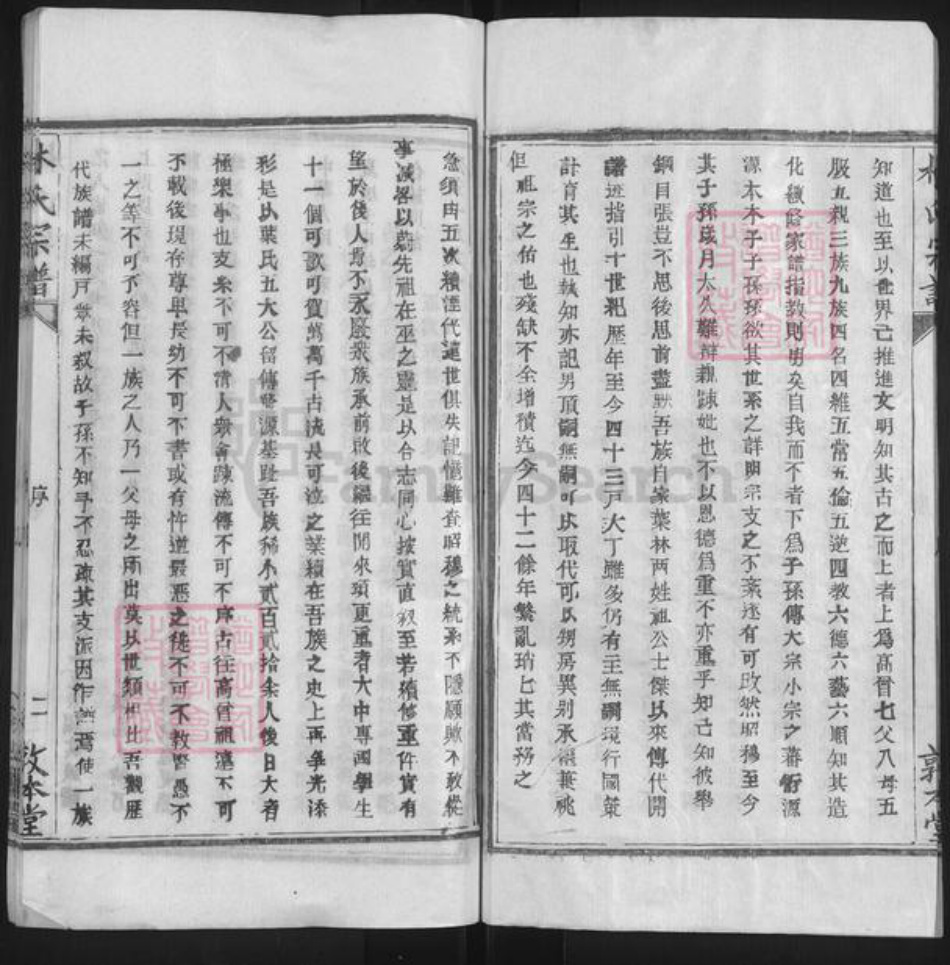 知道也至以世界已推進文明知其古之而上者上爲高曾七父八母五
服五親三族九族四名四維五常五倫五逆四教六德六藝六順知其造
化纘啓家譜指教則明矣自我而不者下爲子孫傳大宗小宗之蕃衍源
源本木子子孫孫欲其世系之詳與宗支之不紊遂有可攷然昭穆至今
其子孫歲月太久難辯親疎妣也不以恩德爲重不亦重乎知己知彼舉
綱目張豈不思後思前盡默吾族自家葉林两姓祖公士傑以來傳代開
譜班指引十世杞歷年至今四十三戶大丁雖多仍有三無嗣現行圖策
計育其生也孰知亦記男頂嗣無嗣可以取代可以甥房異别承繼兼祧
但祖宗之佑也殘缺不全增積迄今四十二餘年繁亂瑣七其當務之
急須由五次續湮代遠世俱失記憶難查昭穆之統系不隱願敗不敢從
事減畧以蔚先祖在巫之靈是以合志同心按實直叙至若積修重件實有
望於後人焉不永嚴哉族承前啟後繼往開來須更重者大中專画學生
十一個可歌可賀萬萬千古淒長可泣之業績在吾族之史上再争光添
彩是以葉氏五大公留傳鰲源基趾吾族稀小貳百貳拾余人後日大者
極樂事也支系不可不清人衆會疎流傳不可不序古往高曾祖遠不可
不載後現在尊卑長幼不可不書或有忤道最惡之徒不可不教警愚不
一之等不可不容但一族之人乃一父母之所出莫以世類相比吾觀歷
代族譜未編戶章未叙故子孫不知乎不忍疎其支派因作譜焉使一族
林氏宗譜
序
二
敦本堂
FamilySearch